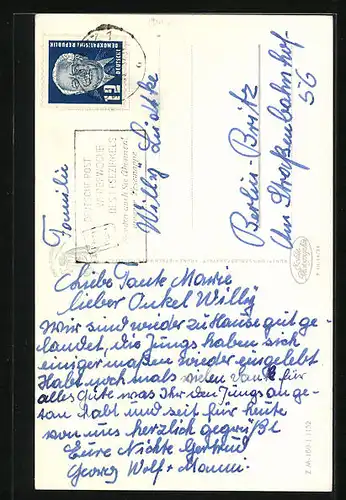 DEUTSCHE
DEMOKRATISCHE REPUBLIK
12
DEUTSCHE POST
WERBEWOCHE
DES LESEZIRKELS
Werden auch Sie Abonnent!
Familie
Willy Liedtke
Berlin-Britz
Am Straßenbahnhof
56
Liebe Tante Marie
lieber Onkel Willy
Wir sind wieder zu Hause gut ge-
landet, die Jungs haben sich
einigermaßen wieder eingelebt
Habt nochmals vielen Dank für
alles Gute was Ihr den Jungs an ge-
tan habt und seit für heute
von uns herzlich gegrüßt
Eure Nichte Gertrud
Georg Wolf + Manni.